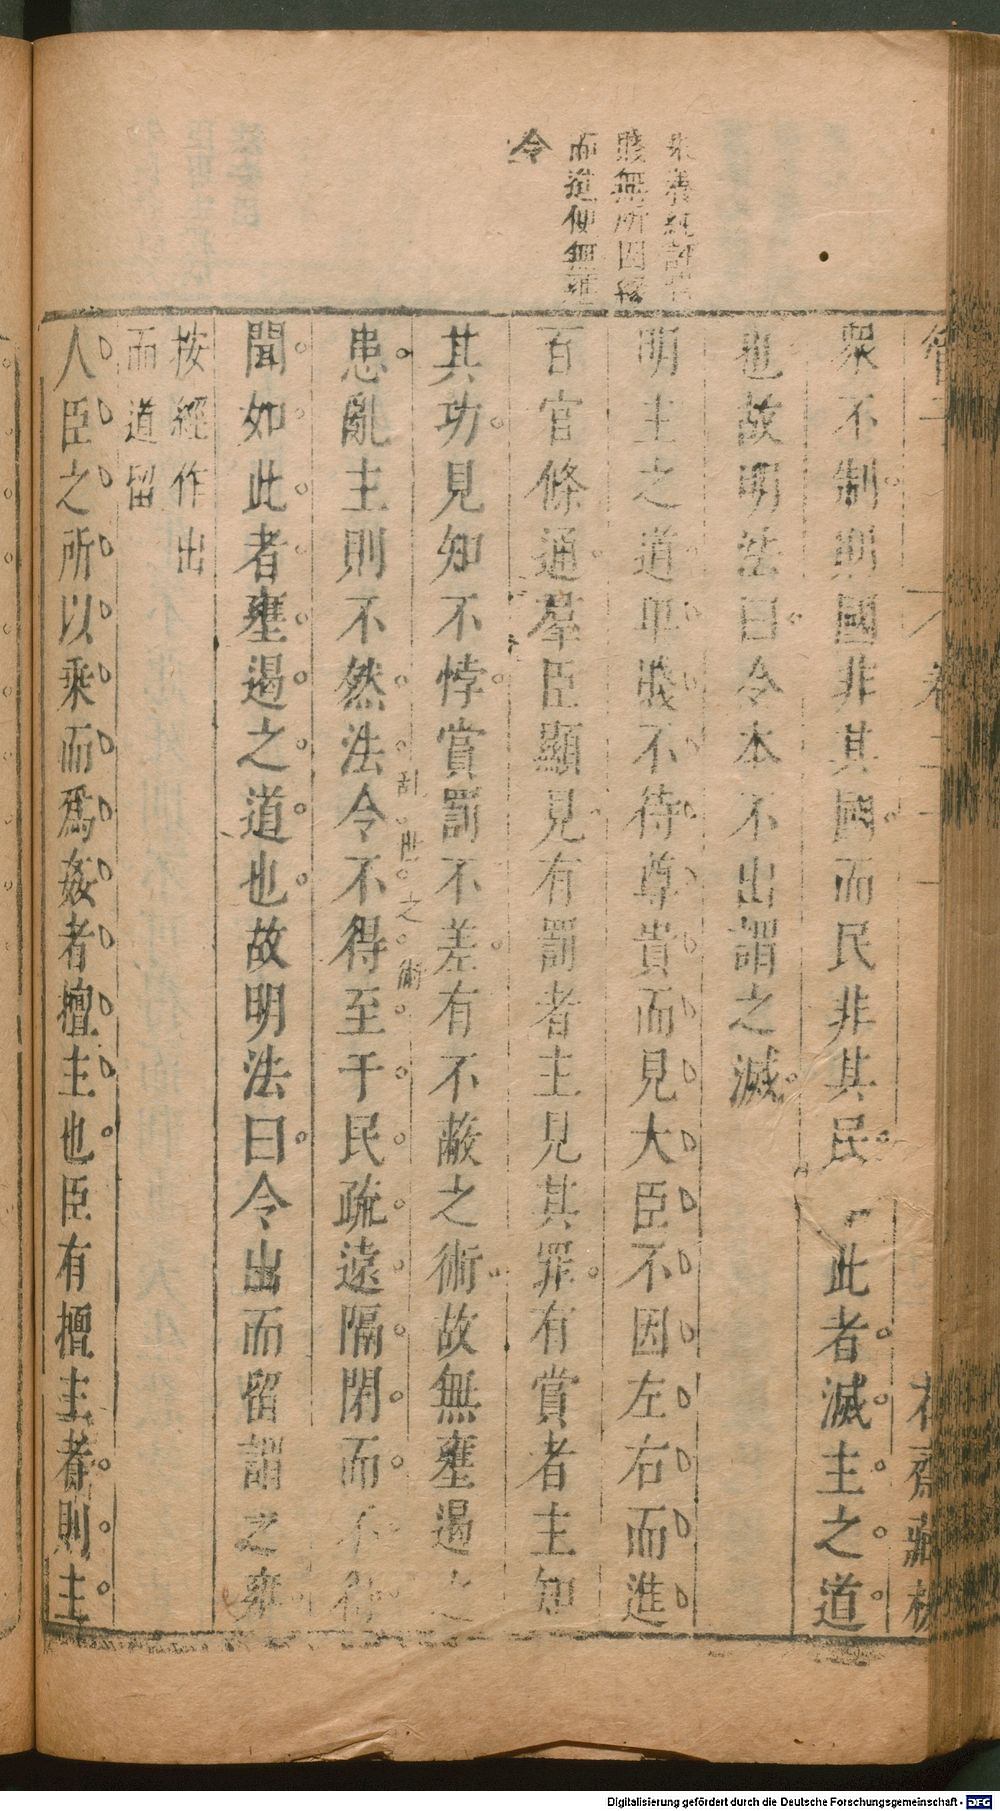 朱養純評貴
賤無所因緣
而進便無壅
令
管子
衆不制則國非其國而民非其民
此者滅主之道
也故明法曰令本不出謂之滅
明主之道卑賤不待尊貴而見大臣不因左右而進
百官條通羣臣顯見有罰者主見其罪有賞者主知
其功見知不悖賞罰不差有不蔽之術故無壅遏之
乱世之術
患亂主則不然法令不得至于民疏遠隔閉而不得
聞如此者壅遏之道也故明法曰令出而留謂之壅
按經作出
而道留
人臣之所以乘而爲姦者擅主也臣有擅主者則主
花齋藏板
Digitalisierung gefördert durch die Deutsche Forschungsgemeinschaft - DFG